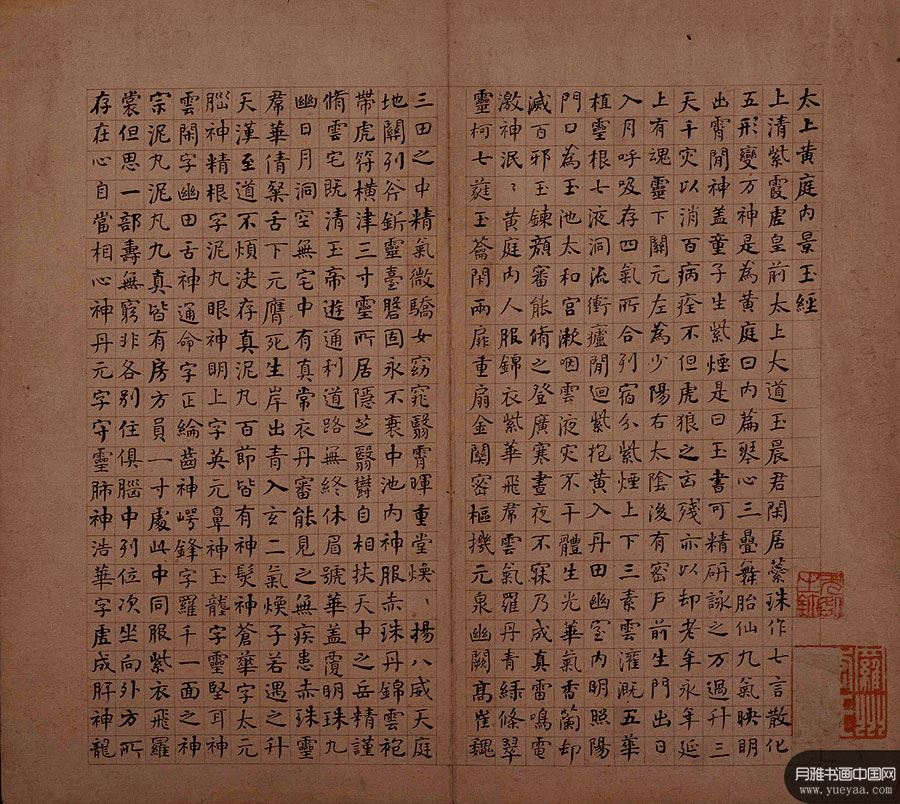 太上黃庭內景玉經
上清紫霞虛皇前太上大道玉晨君閑居蘂珠作七言散化
五形變万神是為黃庭曰內篇琴心三疊舞胎仙九氣映明
出霄閒神蓋童子生紫煙是曰玉書可精研詠之万過升三
天千灾以消百病痊不但虎狼之凶殘亦以却老年永年延
上有魂靈下關元左為少陽右太陰後有密戶前生門出日
入月呼吸存四氣所合列宿分紫煙上下三素雲灌溉五華
植靈根七液洞流衝廬閒迴紫抱黃入丹田幽室內明照陽
門口為玉池太和宮漱咽雲液灾不干體生光華氣香蘭却
滅百邪玉鍊顏審能脩之登廣寒晝夜不寐乃成真雷鳴電
激神泯〻黃庭內人服錦衣紫華飛帬雲氣羅丹青綠條翠
靈柯七蕤玉籥閑兩扉重扇金關密樞機元泉幽闕高崔巍
三田之中精氣微驕女窈窕翳霄暉重堂煥〻揚八威天庭
地關列斧釿靈臺盤固永不衰中池內神服赤珠丹錦雲袍
帶虎符橫津三寸靈所居隱芝翳鬱自相扶天中之岳精謹
脩雲宅既清玉帝遊通利道路無終休眉號華蓋覆明珠九
幽日月洞空無宅中有真常衣丹審能見之無疾患赤珠靈
帬華倩粲舌下元膺死生岸出青入玄二氣煥子若遇之升
天漢至道不煩決存真泥丸百節皆有神髮神蒼華字太元
腦神精根字泥丸眼神明上字英元鼻神玉壟字靈堅耳神
雲閑字幽田舌神通命字正綸齒神崿鋒字羅千一面之神
宗泥丸泥丸九真皆有房方員一寸處此中同服紫衣飛羅
裳但思一部壽無窮非各別住俱腦中列位次坐向外方所
存在心自當相心神丹元字守靈肺神浩華字虛成肝神龍
月雅书画中国网
www.yueyaa.com